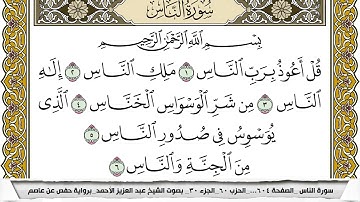 سُورَةُ النَّاسِ
بِسْمِ اللَّهِ الرَّحْمَٰنِ الرَّحِيمِ
قُلْ أَعُوذُ بِرَبِّ النَّاسِ ١ مَلِكِ النَّاسِ ٢ إِلَٰهِ
النَّاسِ ٣ مِن شَرِّ الْوَسْوَاسِ الْخَنَّاسِ ٤ الَّذِي
يُوَسْوِسُ فِي صُدُورِ النَّاسِ ٥
مِنَ الْجِنَّةِ وَالنَّاسِ ٦
سورة الناس_الصفحة ٦٠٤_...الحزب ٦٠_الجزء ٣٠_ بصوت الشيخ عبد العزيز الأحمد_برواية حفص عن عاصم